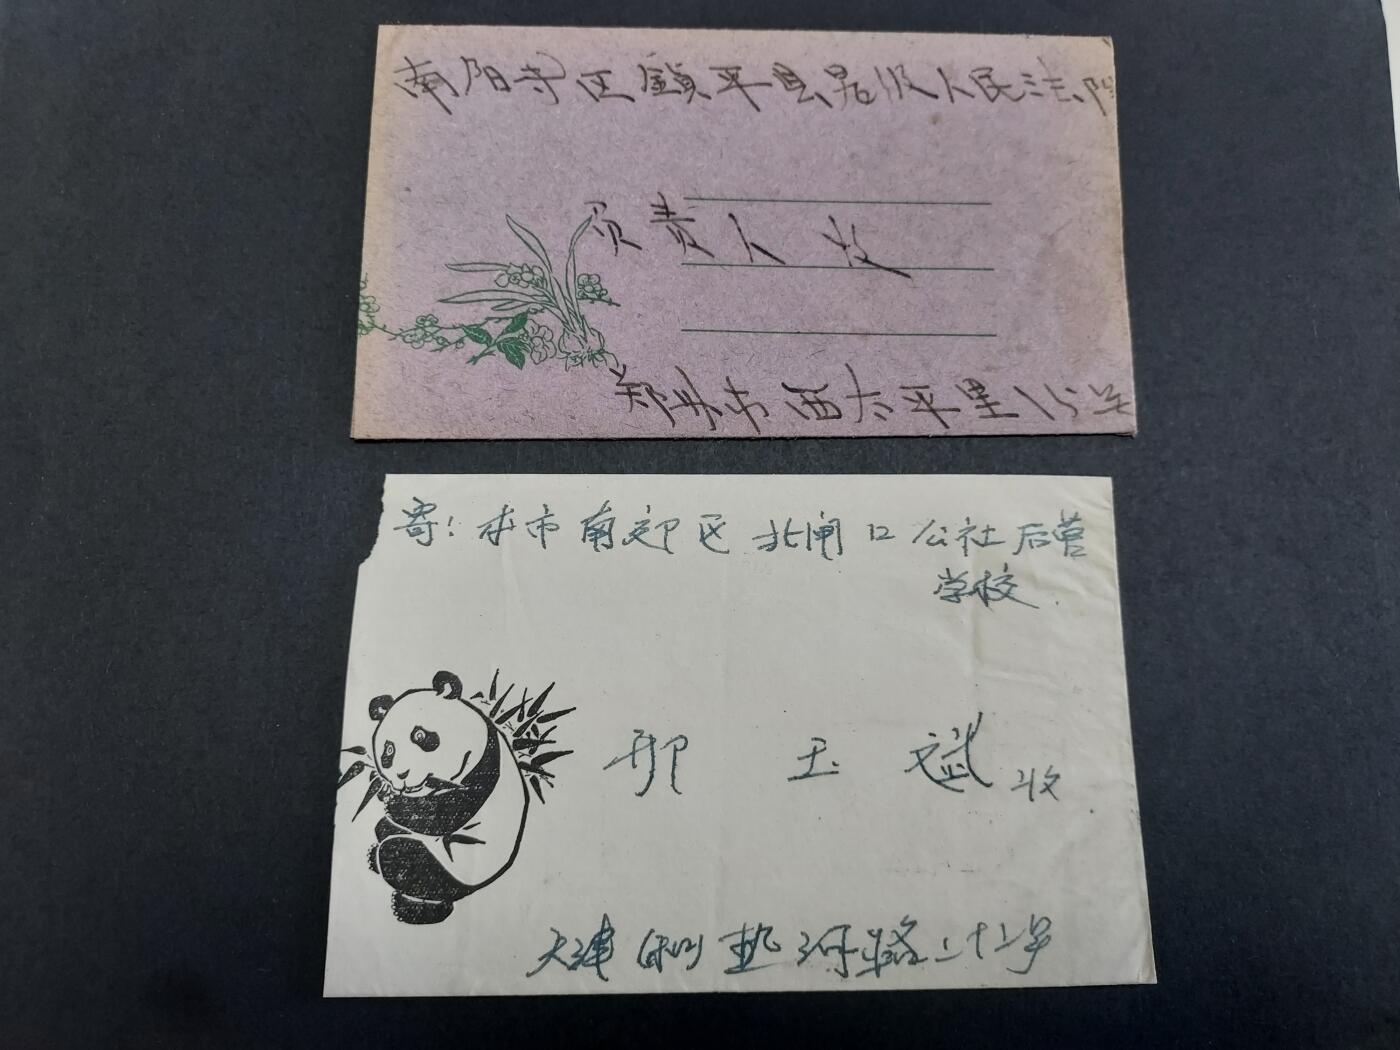 南阳专区镇平县县级人民法院
负责人收
郑州市西太平里15号
寄：本市南郊区北闸口公社后营
学校
邢玉斌收
天津 热河路二十二号